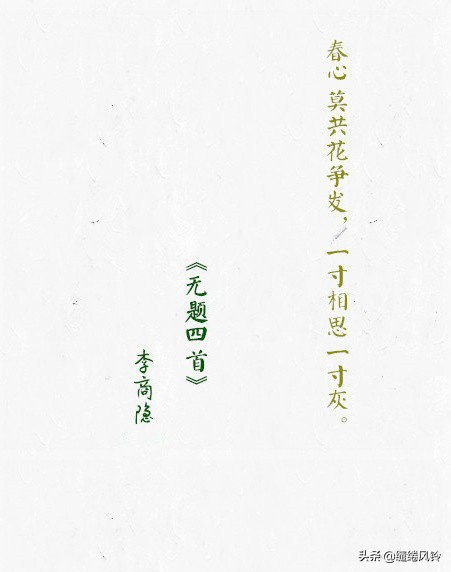 春心莫共花争发，一寸相思一寸灰。
《无题四首》
李商隐
头条 @缱绻风铃